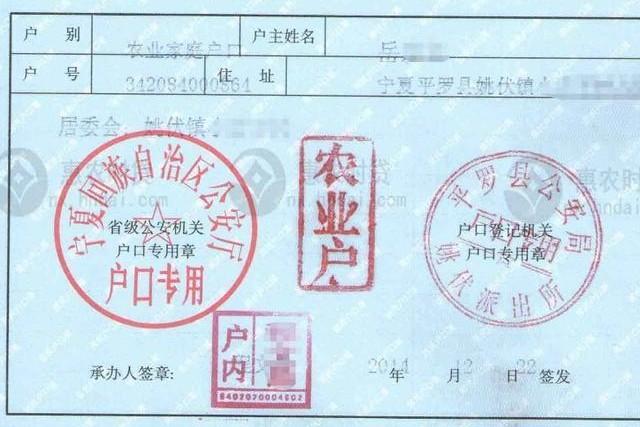 户 别 农业家庭户口 户主姓名 岳
户 号 342084000864 住 址 宁夏平罗县姚伏镇
居委会：姚伏镇
宁夏回族自治区公安厅
省级公安机关
户口专用章
户口专用
农业户
平罗县公安局
户口专用
户口登记机关
户口专用章
姚伏派出所
惠农时贷
惠农时贷
惠农时
户内
6402020004602
承办人签章： 2014 年 12 月 22 日签发